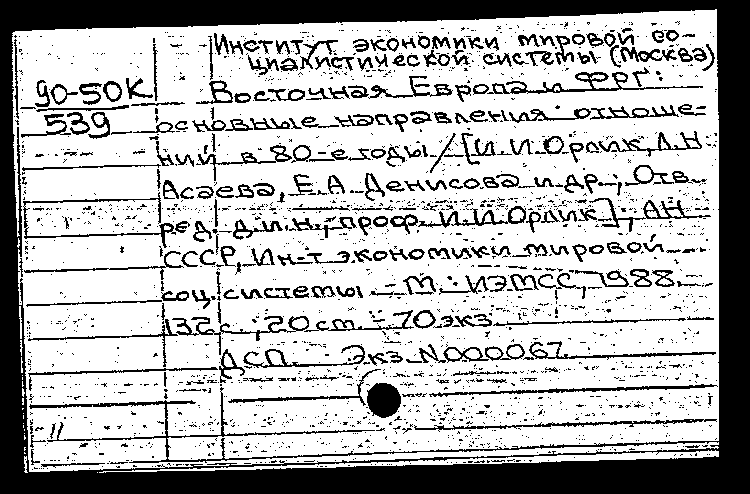 Институт экономики мировой со-
циалистической системы (Москва)
90-50К
539
Восточная Европа и ФРГ:
основные направления отноше-
ний в 80-е годы / [И.И. Орлик, Л.Н.
Асаева, Е.А. Денисова и др.; Отв.
ред. д.и.н., проф. И.И. Орлик]; АН
СССР, Ин-т экономики мировой
соц. системы. - М.: ИЭМСС, 1988. -
132 с.; 20 см. - 70 экз.
ДСП. Экз. N000067.
11